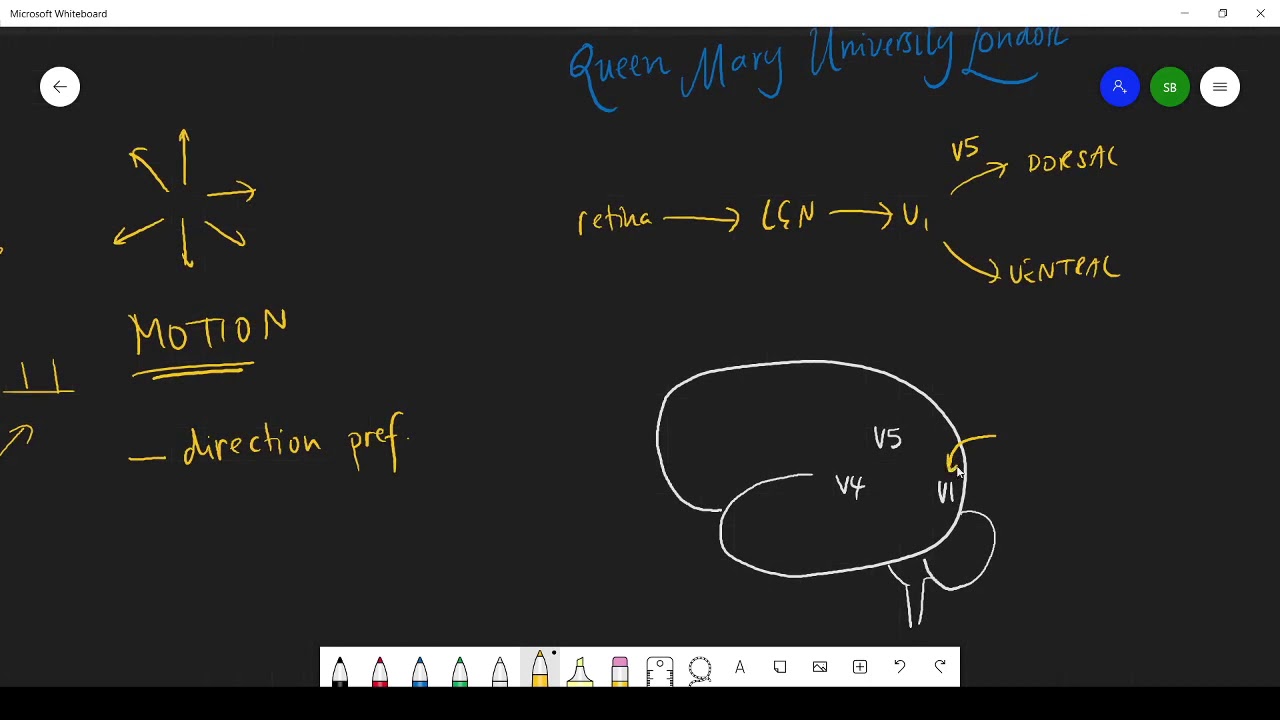 Microsoft Whiteboard
Queen Mary University London
SB
V5
DORSAL
retina → LGN → V1
VENTRAL
MOTION
— direction pref.
V5
V4
V1
A